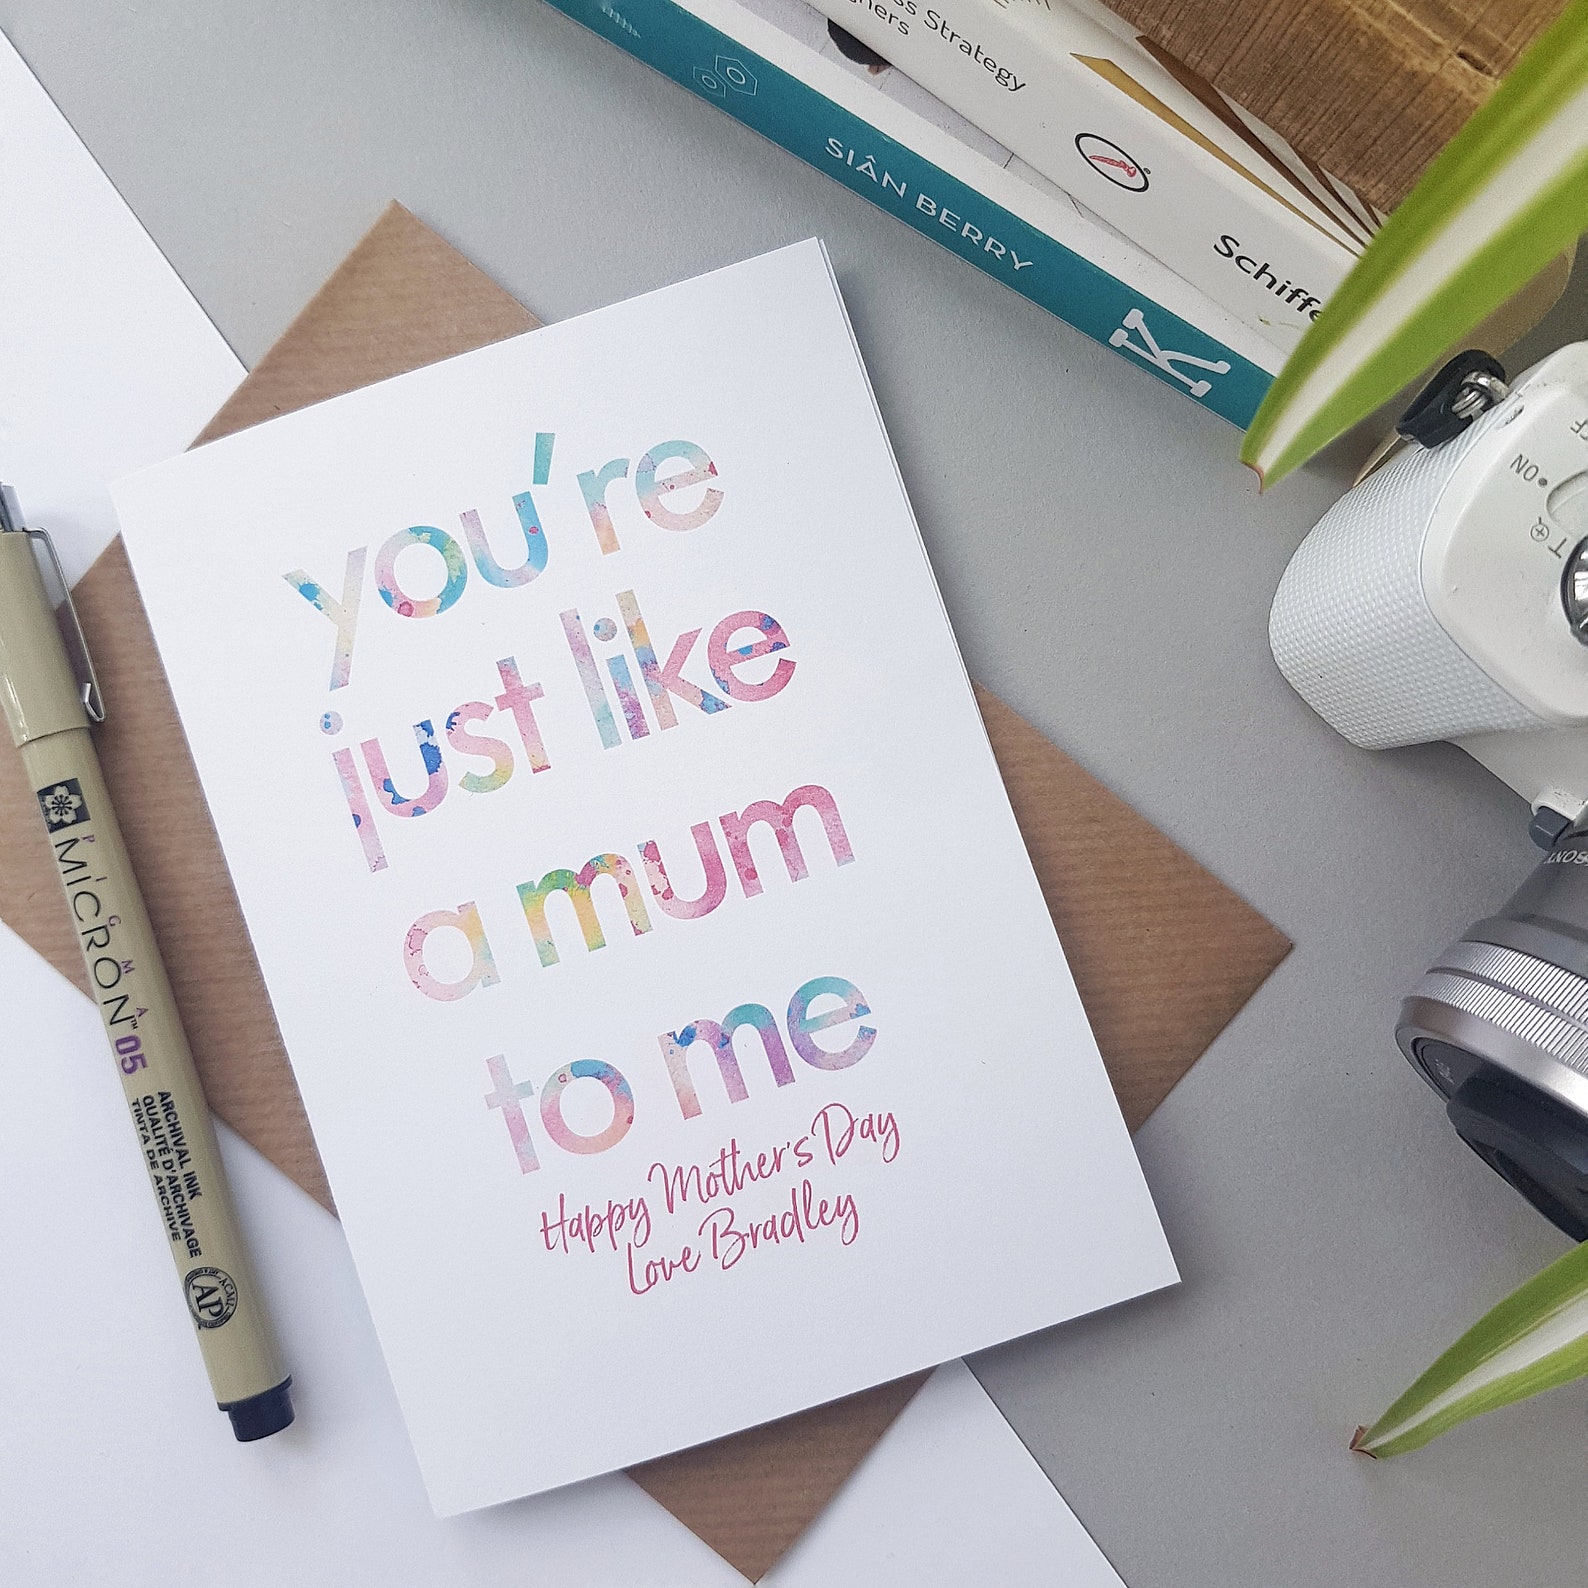 you're
just like
a mum
to me
Happy Mother's Day
Love Bradley
PIGMA
MICRON™ 05
ARCHIVAL INK
QUALITÉ D'ARCHIVAGE
TINTA DE ARCHIVE
AP
SIÂN BERRY
Strategy
Schiffe
ON
T
SONY